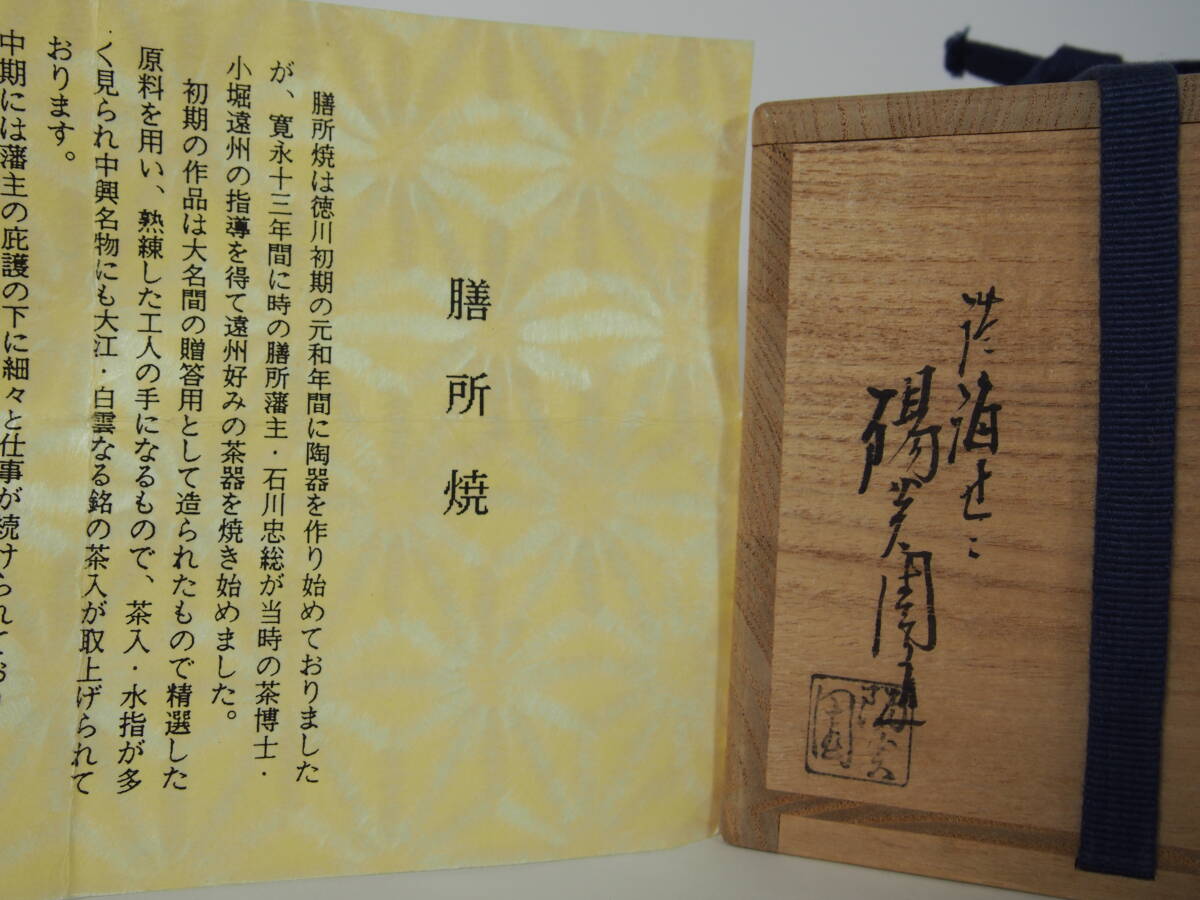 膳所焼
膳所焼は徳川初期の元和年間に陶器を作り始めておりました
が、寛永十三年間に時の膳所藩主・石川忠総が当時の茶博士・
小堀遠州の指導を得て遠州好みの茶器を焼き始めました。
初期の作品は大名間の贈答用として造られたもので精選した
原料を用い、熟練した工人の手になるもので、茶入・水指が多
く見られ中興名物にも大江・白雲なる銘の茶入が取上げられて
おります。
中期には藩主の庇護の下に細々と仕事が続けられてお
陽炎園